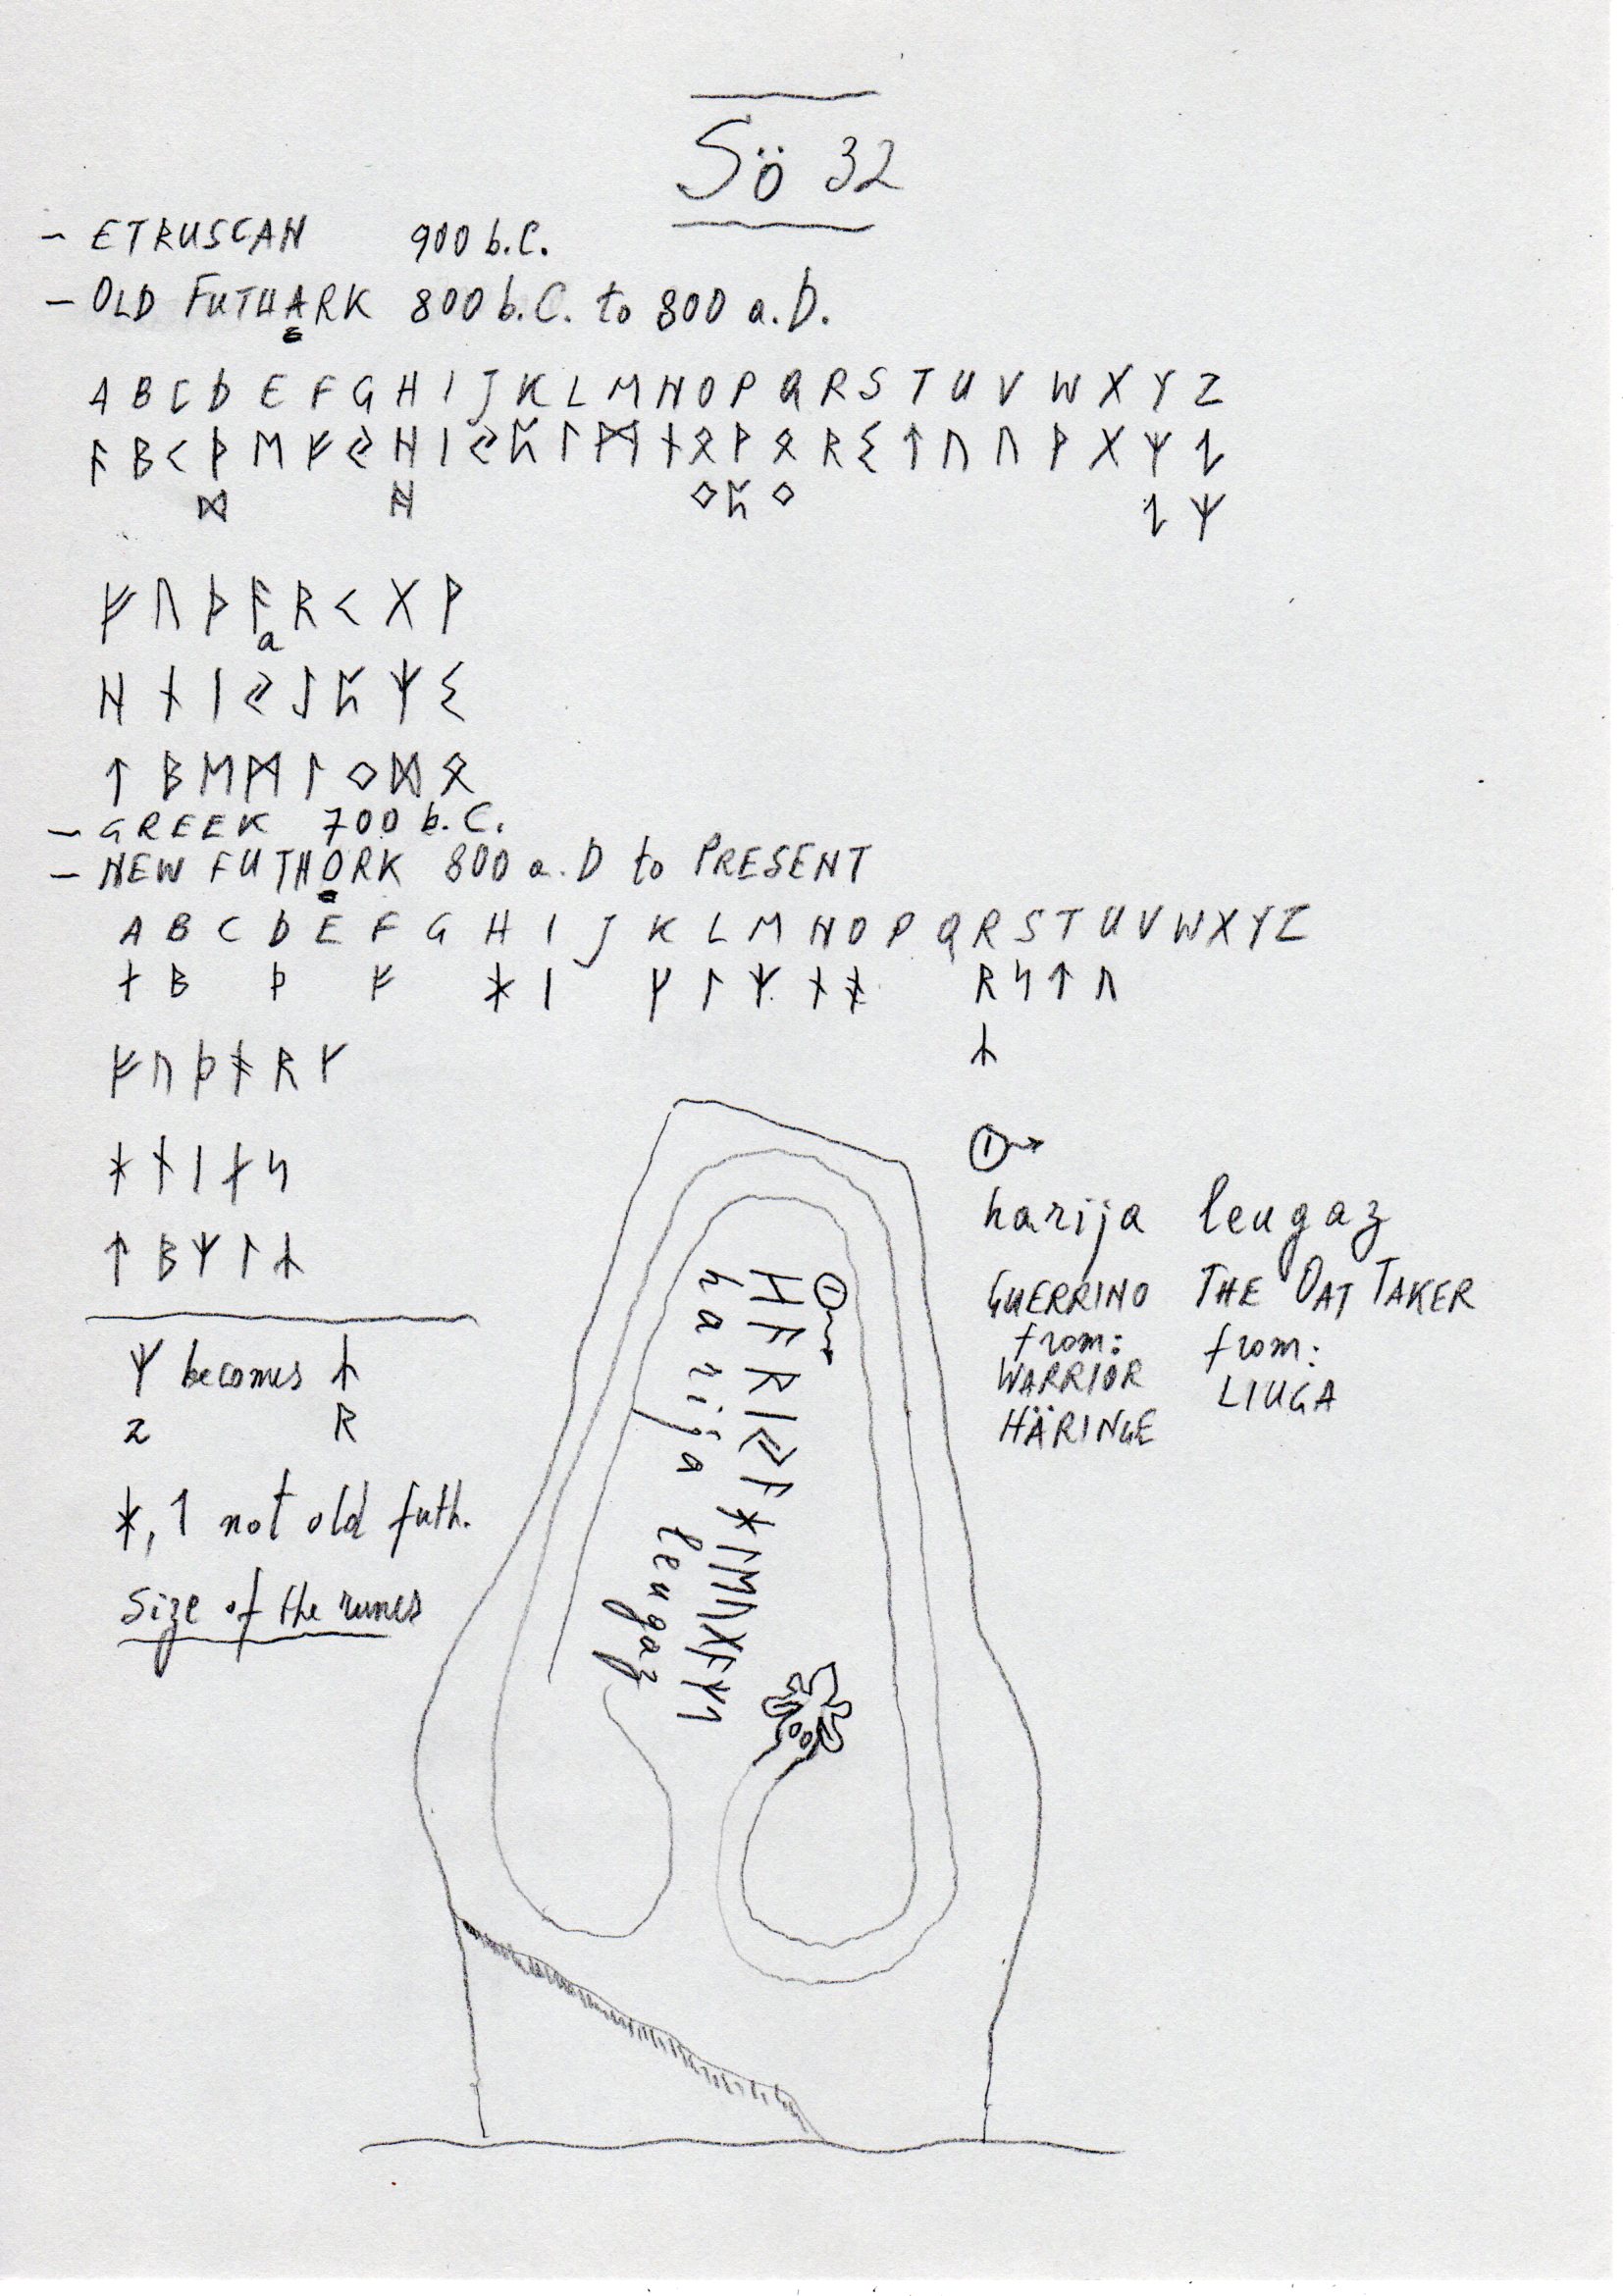 Sö 32
– ETRUSCAN 900 b.C.
– OLD FUTHARK 800 b.C. to 800 a.D.
A B C D E F G H I J K L M N O P Q R S T U V W X Y Z
ᚨ ᛒ ᚲ ᚦ ᛖ ᚠ ᛃ ᚺ ᛁ ᛃ ᛈ ᛚ ᛗ ᚾ ᛟ ᚹ ᛟ ᚱ ᛊ ᛏ ᚢ ᚢ ᚹ ᚷ ᛉ ᛇ
ᛞ ᚻ ᛜ ᛈ ᛜ ᛇ ᛉ
ᚠ ᚢ ᚦ ᚨ ᚱ ᚲ ᚷ ᚹ
a
ᚺ ᚾ ᛁ ᛃ ᛇ ᛈ ᛉ ᛊ
ᛏ ᛒ ᛖ ᛗ ᛚ ᛜ ᛞ ᛟ
– GREEK 700 b.C.
– NEW FUTHORK 800 a.D to PRESENT
A B C D E F G H I J K L M N O P Q R S T U V W X Y Z
ᛅ ᛒ ᚦ ᚠ ᚼ ᛁ ᚴ ᛚ ᛉ ᚾ ᚬ ᚱ ᛋ ᛏ ᚢ
ᛦ
ᚠ ᚢ ᚦ ᚬ ᚱ ᚴ
ᚼ ᚾ ᛁ ᛅ ᛋ
ᛏ ᛒ ᛉ ᛚ ᛦ
ᛉ becomes ᛦ
z R
ᚼ, ᛐ not old futh.
Size of the runes
1→
ᚺᚨᚱᛁᛃᚨᚼᛚᛖᚢᚷᚨᛉᛐ
harija leugaz
1→
harija leugaz
GUERRINO THE OAT TAKER
from: from:
WARRIOR LIUGA
HÄRINGE